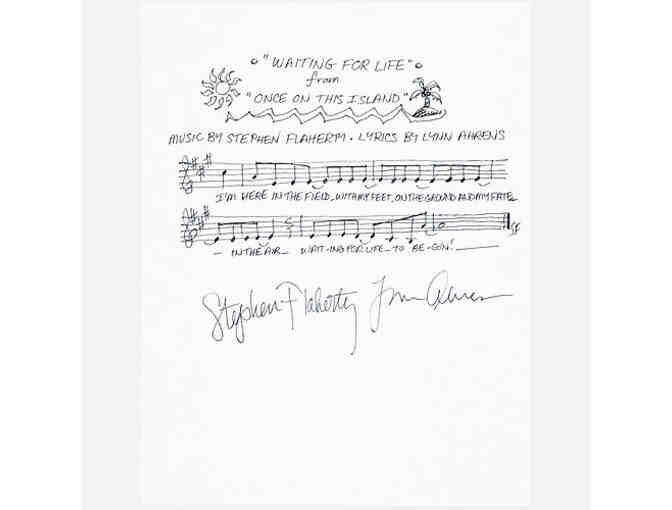 "WAITING FOR LIFE"
from
"ONCE ON THIS ISLAND"
MUSIC BY STEPHEN FLAHERTY • LYRICS BY LYNN AHRENS
I'M HERE IN THE FIELD_WITH MY FEET_ON THE GROUND AND MY FATE_
— IN THE AIR — WAIT-ING FOR LIFE_TO BE-GIN! ———
Stephen Flaherty Lynn Ahrens